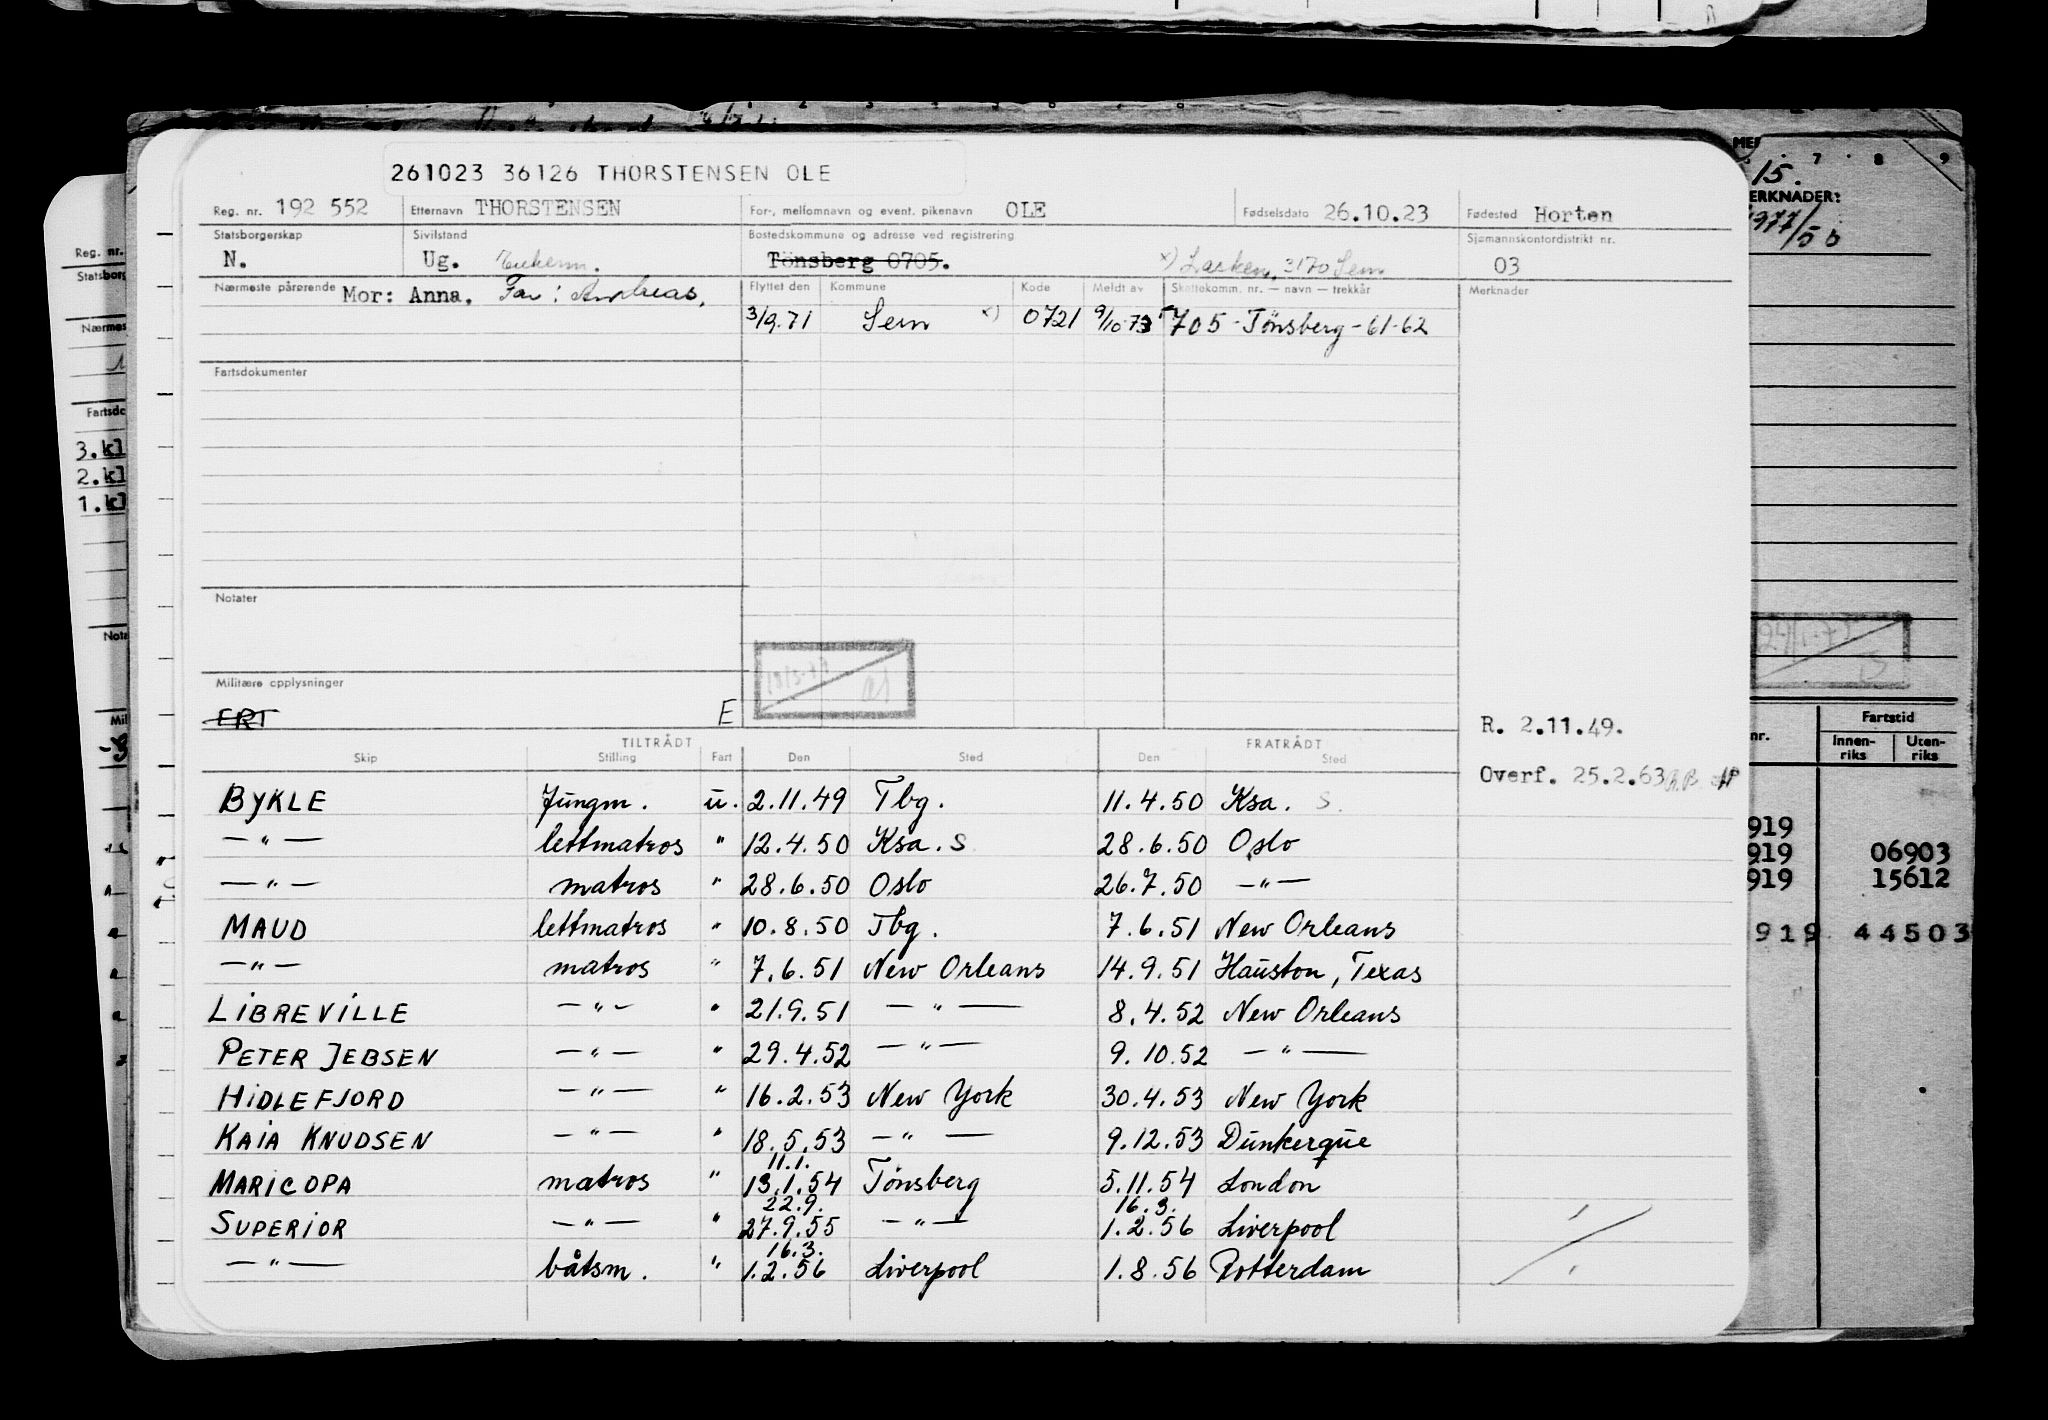 261023 36126 THORSTENSEN OLE
Reg. nr. 192 552 Etternavn THORSTENSEN For-, mellomnavn og event. pikenavn OLE Fødselsdato 26.10.23 Fødested Horten
Statsborgerskap Sivilstand Bostedskommune og adresse ved registrering Sjømannskontordistrikt nr.
N. Ug. Tönsberg 0705. x) 3170 Sem 03
Nærmeste pårørende Mor: Anna. Far: Andreas. Flyttet den Kommune Kode Meldt av Skattekomm. nr. — navn — trekkår Merknader
3/9.71 Sem x) 0721 9/10-73 705-Tönsberg-61-62
Fartsdokumenter
Notater
Militære opplysninger
FRT E
R. 2.11.49.
Overf. 25.2.63
TILTRÅDT FRATRÅDT
Skip Stilling Fart Den Sted Den Sted
BYKLE Jungm. u. 2.11.49 Tbg. 11.4.50 Ksa. S.
—"— lettmatros " 12.4.50 Ksa. S 28.6.50 Oslo
—"— matros " 28.6.50 Oslo 26.7.50 —"—
MAUD lettmatros " 10.8.50 Tbg. 7.6.51 New Orleans
—"— matros " 7.6.51 New Orleans 14.9.51 Hauston, Texas
LIBREVILLE —"— " 21.9.51 —"— 8.4.52 New Orleans
PETER JEBSEN —"— " 29.4.52 —"— 9.10.52 —"—
HIDLEFJORD —"— " 16.2.53 New York 30.4.53 New York
KAIA KNUDSEN —"— " 18.5.53 —"— 9.12.53 Dunkerque
11.1.
MARICOPA matros " 13.1.54 Tönsberg 5.11.54 London
22.9. 16.3.
SUPERIOR —"— " 27.9.55 —"— 1.2.56 Liverpool
16.3.
—"— båtsm. " 1.2.56 Liverpool 1.8.56 Rotterdam
Reg. nr.
Fartsdo
3.kl
2.kl
1.kl
7 8 9
15.
ERKNADER:
1977/50
nr. Fartstid
Innen-riks Uten-riks
919
919 06903
919 15612
919 44503